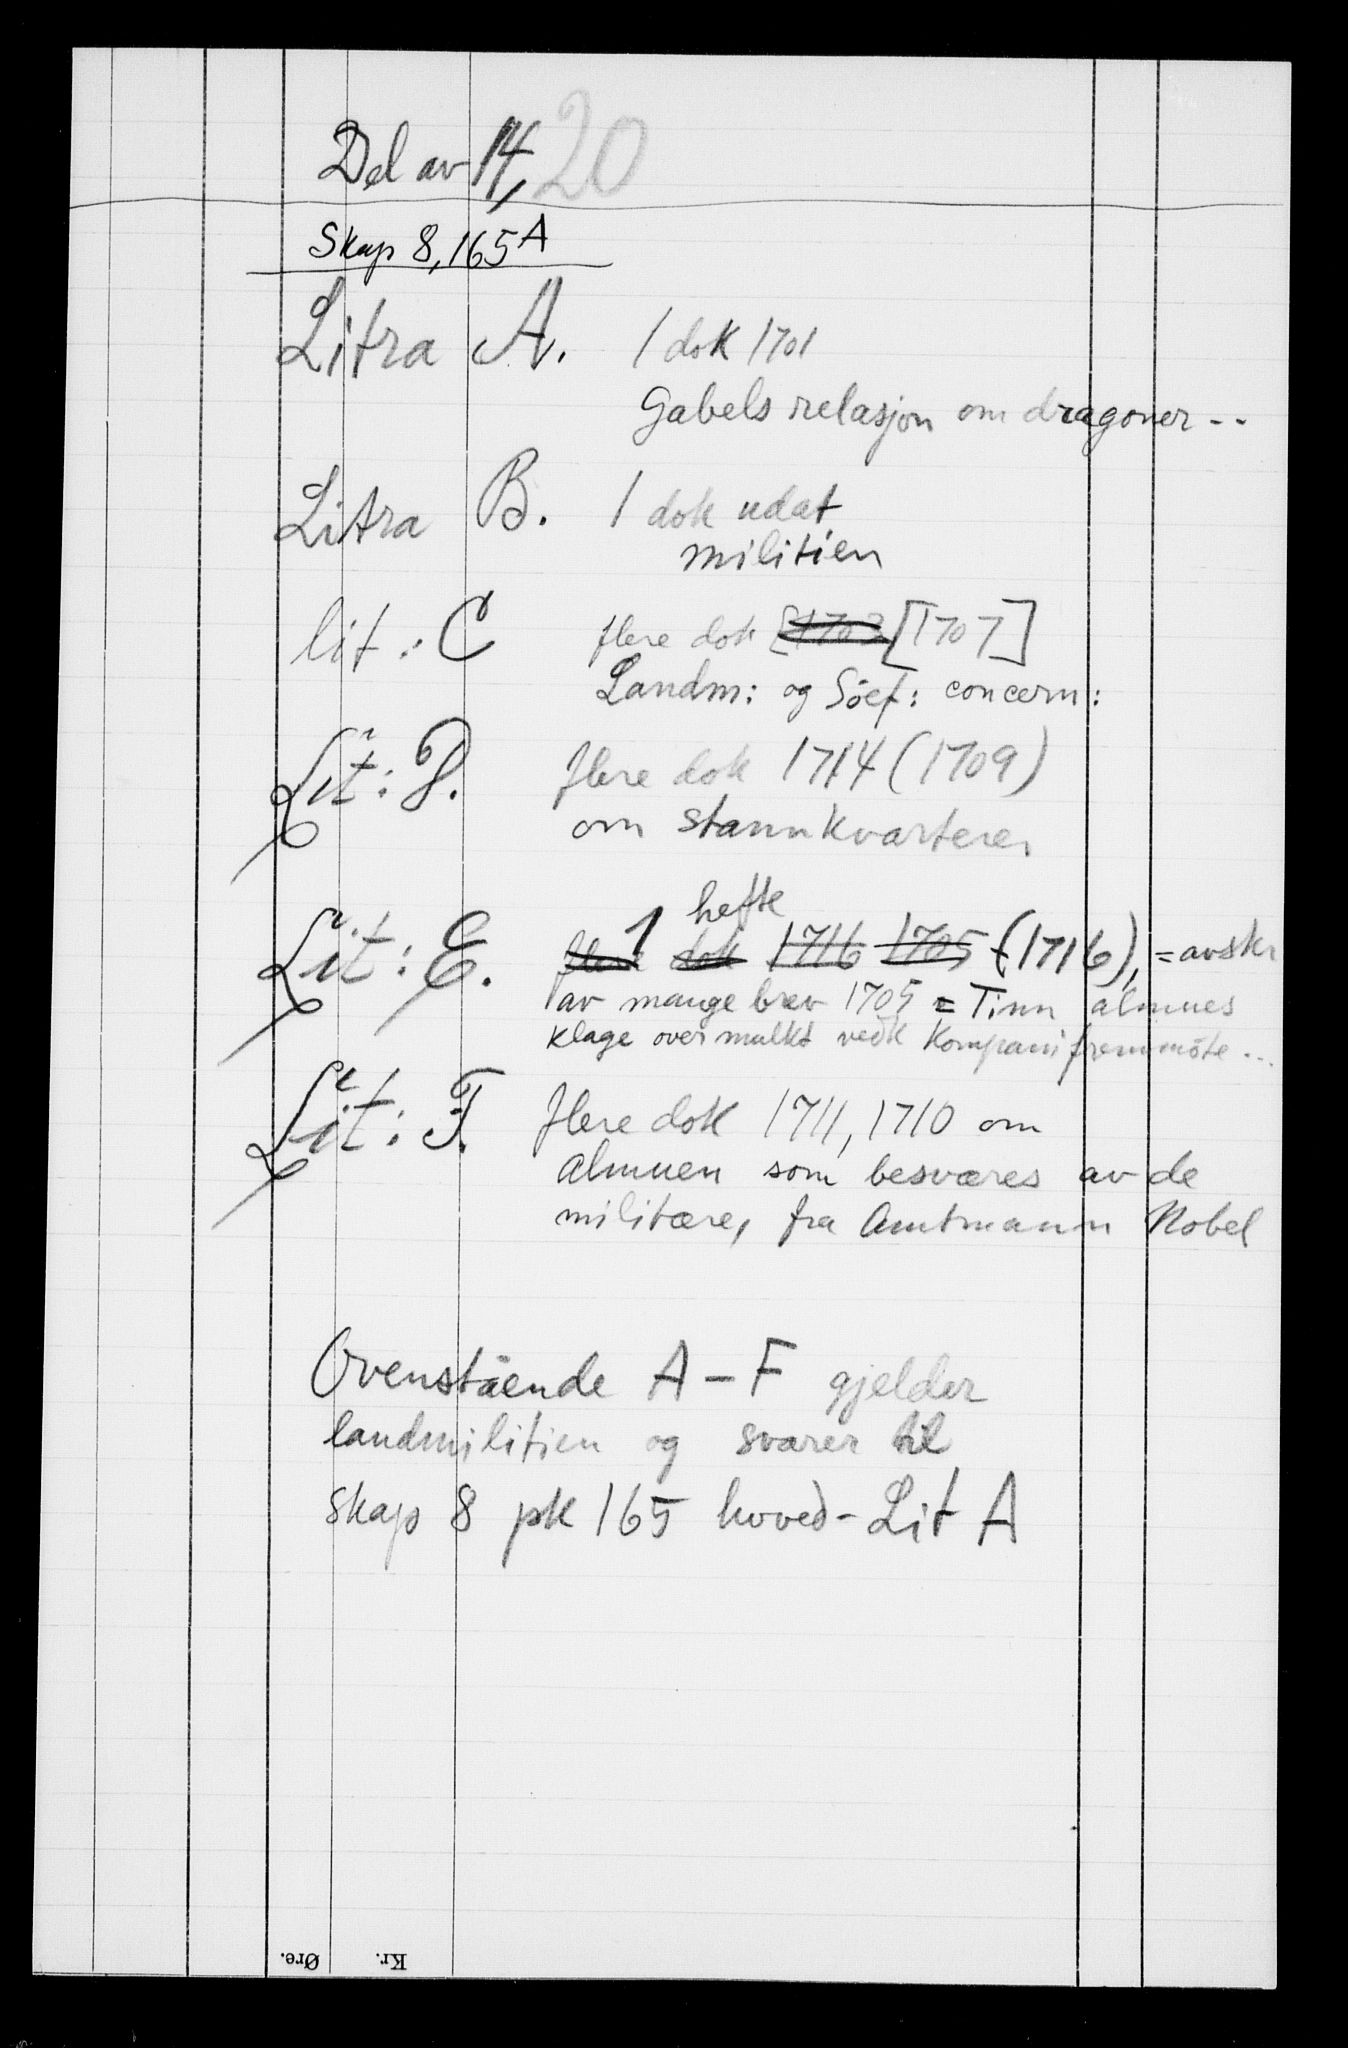 Del av 14, 20
Skap 8, 165 A
Litra A. 1 dok 1701
Gabels relasjon om dragoner --
Litra B. 1 dok udat
militien
lit: C flere dok [1703 [1707]
Landm: og Söef: concern:
Lit: D. flere dok 1714 (1709)
om stannkvarterer
hefte
Lit: E. flere 1 dok 1716 1705 (1716), = avskr
av mange brev 1705 = Tinn almues
klage over mulkt vedk kompanifremmöte ...
Lit: F. flere dok 1711, 1710 om
almuen som besværes av de
militære, fra Amtmann Nobel
Ovenstående A - F gjelder
landmilitien og svarer til
skap 8 pk 165 hoved- Lit A
Kr. Øre.